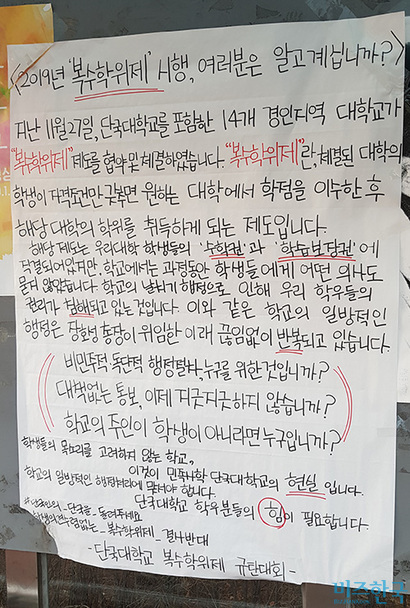 <2019년 '복수학위제' 시행, 여러분은 알고계십니까?>
지난 11월27일, 단국대학교를 포함한 14개 경인지역 대학교가
"복수학위제" 제도를 협약 및 체결하였습니다. "복수학위제"란, 체결된 대학의
학생이 자격요건만 갖추면 원하는 대학에서 학점을 이수한 후
해당 대학의 학위를 취득하게 되는 제도입니다.
해당 제도는 우리대학 학생들의 '수학권'과 '학습보장권'에
직결되어있지만, 학교에서는 과정동안 학생들에게 어떤 의사도
묻지 않았습니다. 학교의 날치기 행정으로 인해 우리 학우들의
권리가 침해되고 있는 것입니다. 이와 같은 학교의 일방적인
행정은 장호성 총장이 위임한 이래 끊임없이 반복되고 있습니다.
비민주적 독단적 행정절차, 누구를 위한것입니까?
대책없는 통보, 이제 지긋지긋하지 않습니까?
학교의 주인이 학생이 아니라면 누구입니까?
학생들의 목소리를 고려하지 않는 학교.
이것이 민족사학 단국대학교의 현실입니다.
학교의 일방적인 행정처리에 맞서야 합니다.
단국대학교 학우분들의 힘이 필요합니다.
돌려주세요
복수학위제 결사반대
-단국대학교 복수학위제 규탄대회-
비즈한국